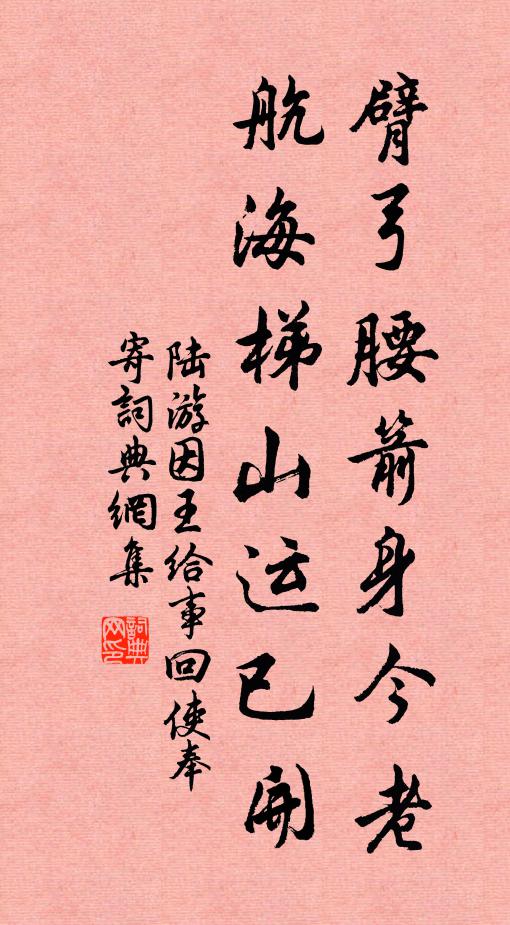 臂弓腰箭身今老
航海梯山运已开
陆游因王给事回使奉
寄詞典網集
詞典网印